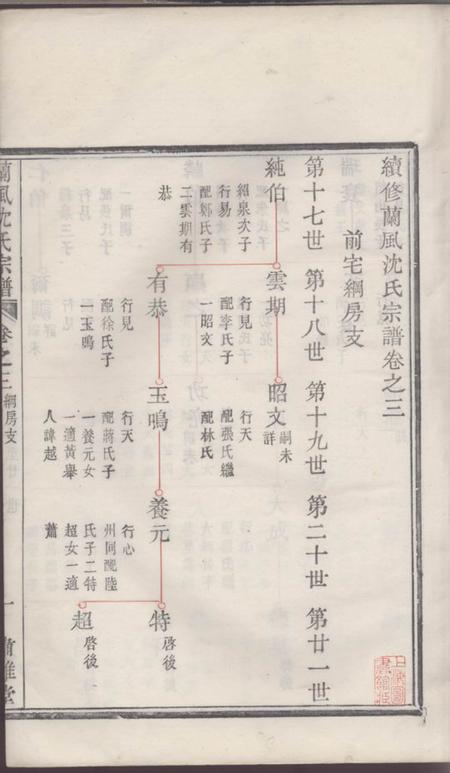 續修蘭風沈氏宗譜卷之三
前宅綱房支
第十七世 第十八世 第十九世 第二十世 第廿一世
純伯
紹泉次子
行易
配鄭氏子
二雲期有
恭
雲期
行見
配李氏子
一昭文
昭文
嗣未
詳
行天
配張氏繼
配林氏
有恭
行見
配徐氏子
一玉鳴
玉鳴
行天
配蔣氏子
一養元女
一適黃舉
人諱越
養元
行心
州同配陸
氏子二特
超女一適
蕭
特
啓後
超
啓後
蘭風沈氏宗譜
卷之三
綱房支
一
肅雝堂